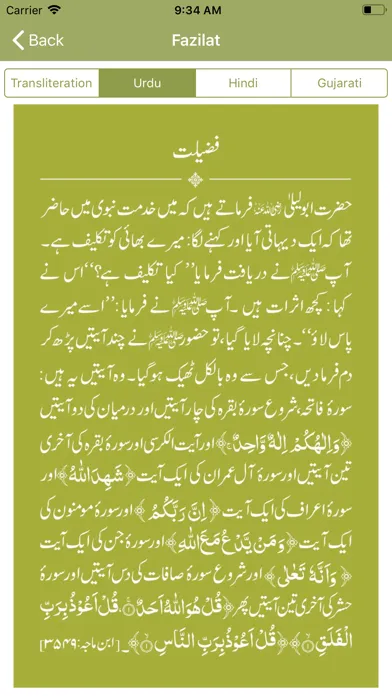 Carrier 9:34 AM
Back Fazilat
Transliteration Urdu Hindi Gujarati
فضیلت
حضرت ابولیلیٰ رضی اللہ عنہ فرماتے ہیں کہ میں خدمت نبوی میں حاضر
تھا کہ ایک دیہاتی آیا اور کہنے لگا: میرے بھائی کو تکلیف ہے۔
آپ ﷺ نے دریافت فرمایا ’’کیا تکلیف ہے؟‘‘ اس نے
کہا: کچھ اثرات ہیں۔ آپ ﷺ نے فرمایا: ’’اسے میرے
پاس لاؤ‘‘۔ چنانچہ لایا گیا، تو حضور ﷺ نے چند آیتیں پڑھ کر
دم فرمادیں، جس سے وہ بالکل ٹھیک ہوگیا۔ وہ آیتیں یہ ہیں:
سورۂ فاتحہ، شروع سورۂ بقرہ کی چار آیتیں اور درمیان کی دو آیتیں
﴿وَاِلٰهُكُمْ اِلٰهٌ وَّاحِدٌ﴾ اور آیت الکرسی اور سورۂ بقرہ کی آخری
تین آیتیں اور سورۂ آل عمران کی ایک آیت ﴿شَهِدَ اللّٰهُ﴾ اور
سورۂ اعراف کی ایک آیت ﴿اِنَّ رَبَّكُمُ﴾ اور سورۂ مومنون کی
ایک آیت ﴿وَمَنْ يَّدْعُ مَعَ اللّٰهِ﴾ اور سورۂ جن کی ایک آیت
﴿وَاَنَّهٗ تَعٰلٰى﴾ اور شروع سورۂ صافات کی دس آیتیں اور سورۂ
حشر کی آخری تین آیتیں پھر ﴿قُلْ هُوَ اللّٰهُ اَحَدٌ ۝۱، قُلْ اَعُوْذُ بِرَبِّ
الْفَلَقِ ۝۱﴾ ﴿قُلْ اَعُوْذُ بِرَبِّ النَّاسِ ۝۱﴾۔ [ابن ماجہ: ۳۵۴۹]